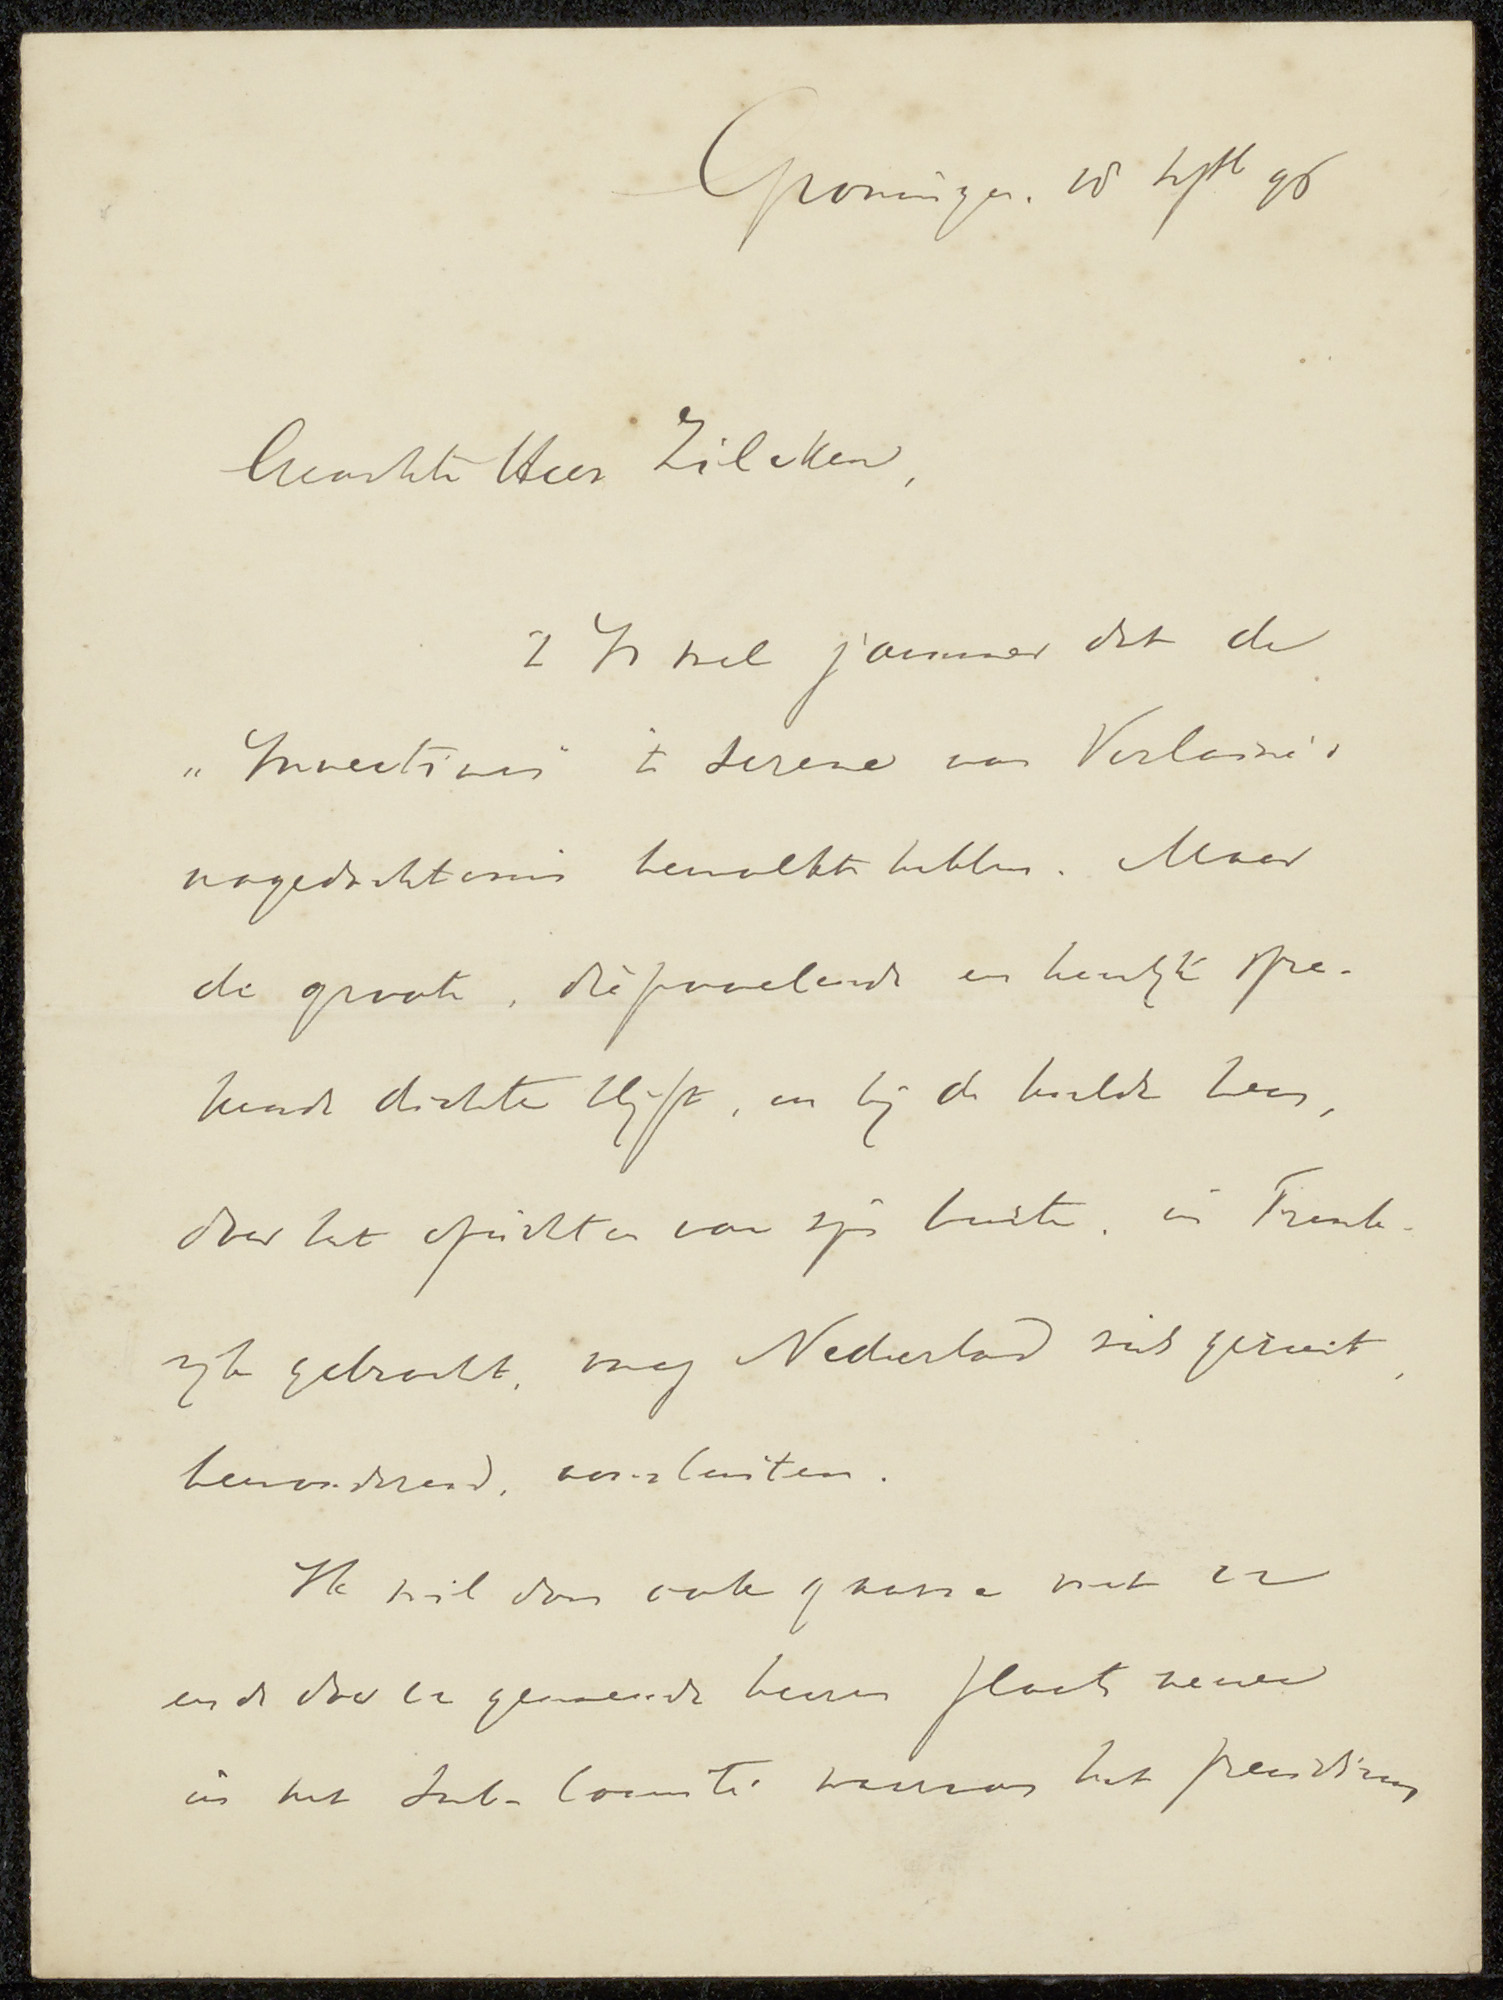 Groningen. 18 Septb 96
Geachte Heer Zilcken,
't Is wel jammer dat de
„Invectives" 't serene van Verlaine's
nagedachtenis bewolkt hebben. Maar
de groote, diepvoelende en heerlijk spre-
kende dichter blijft, en bij de hulde hem,
door het oprichten van zijn buste, in Frank-
rijk gebracht, mag Nederland zich gerust,
bewonderend, aansluiten.
Ik wil dan ook gaarne met U
en de door U genoemde heeren plaats nemen
in het Sub-Comité waarvan het presidium